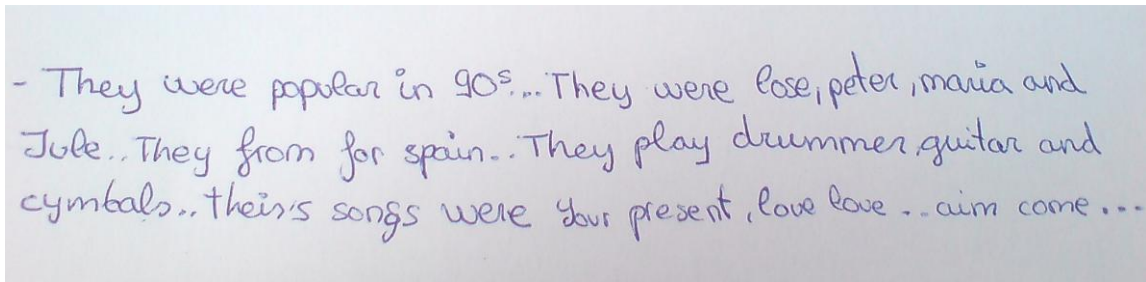 - They were popular in 90s... They were lose, peter, maria and
Jule.. They from for spain.. They play drummer, guitar and
cymbals.. theirs's songs were your present, love love .. aim come ...